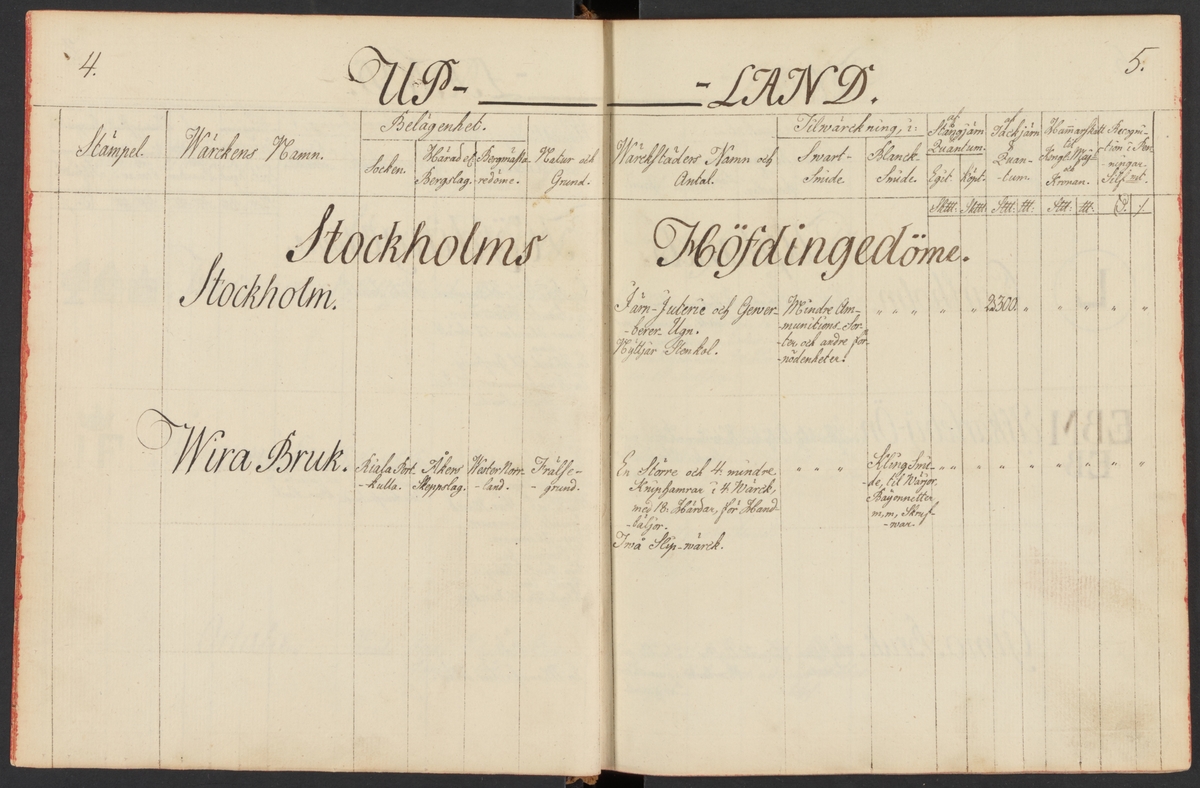 4.
5.
UP- -LAND.
Stämpel.
Wärckens Namn.
Belägenhet.
Socken.
Härad el.
Bergslag.
Bergmästa-
redöme.
Natur och
Grund.
Wärckstäders Namn och
Antal.
Tilwärckning, i:
Swart-
Smide.
Blanck-
Smide.
af
Stångjärn
Quantum.
Egit.
Köpt.
af
Tackjärn
Quan-
-tum.
Hammarskatt
til
och
Kronan.
Recogni-
-tion i Pen-
ningar
Silf. mt.
Stockholms Höfdingedöme.
Stockholm.
Järn-Juterie och Gewer-
-berer Ugn.
Nyttjar Stenkol.
Mindre Am-
-munitions-Sor-
-ter, och andre för-
-nödenheter.
2300.
Wira Bruk.
Riala Sot.
-kulla.
Åkers
Skeppslag.
Wester Norr-
-land.
Frälse-
-grund.
En Större och 4 mindre
Kniphamrar i 4 Wärck,
med 18 Härdar, för Hand
-bäljor.
Twå Slip-wärck.
Kling Smi-
-de, til Wärjor,
Bajonnetter
m,m, Skruf
-war-